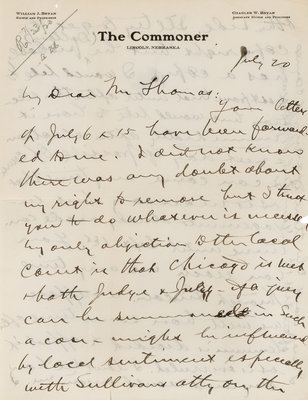 WILLIAM J. BRYAN
EDITOR AND PROPRIETOR
CHARLES W. BRYAN
ASSOCIATE EDITOR AND PUBLISHER
The Commoner
LINCOLN, NEBRASKA
July 20
My Dear Mr Thomas:
Your letters
of July 6 & 15 have been forward
ed to me. I did not know
there was any doubt about
my right to remove but I trust
you to do whatever is necessary
My only objection to the local
court is that Chicago is
both Judge & Jury. If a jury
can be summoned in such
a case might be influenced
by local sentiment especially
with Sullivans atty on the